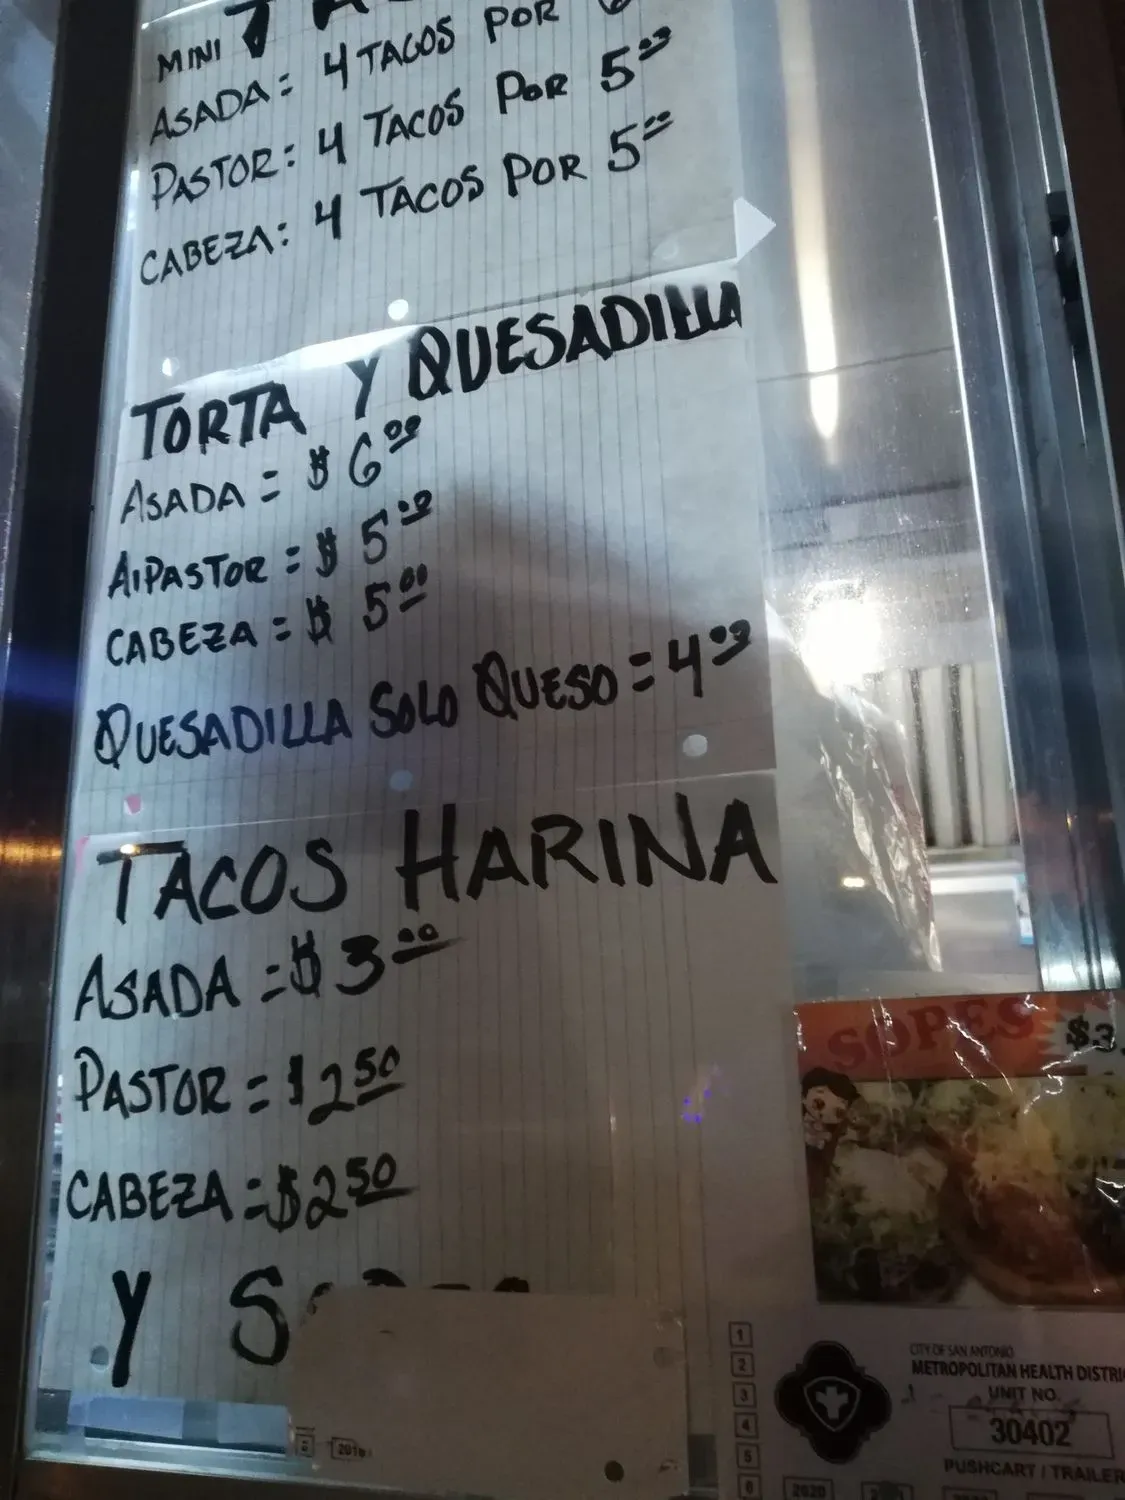 MINI
ASADA: 4 TACOS POR
PASTOR: 4 TACOS POR 5.00
CABEZA: 4 TACOS POR 5.00
TORTA Y QUESADILLA
ASADA = $ 6.00
AlPASTOR = $ 5.00
CABEZA = $ 5.00
QUESADILLA SOLO QUESO = 4.00
TACOS HARINA
ASADA = $ 3.00
PASTOR = $2.50
CABEZA = $2.50
Y
SOPES
$3.
CITY OF SAN ANTONIO
METROPOLITAN HEALTH DISTRI
UNIT NO.
30402
PUSHCART / TRAILER
1
2
3
4
5
6
2020